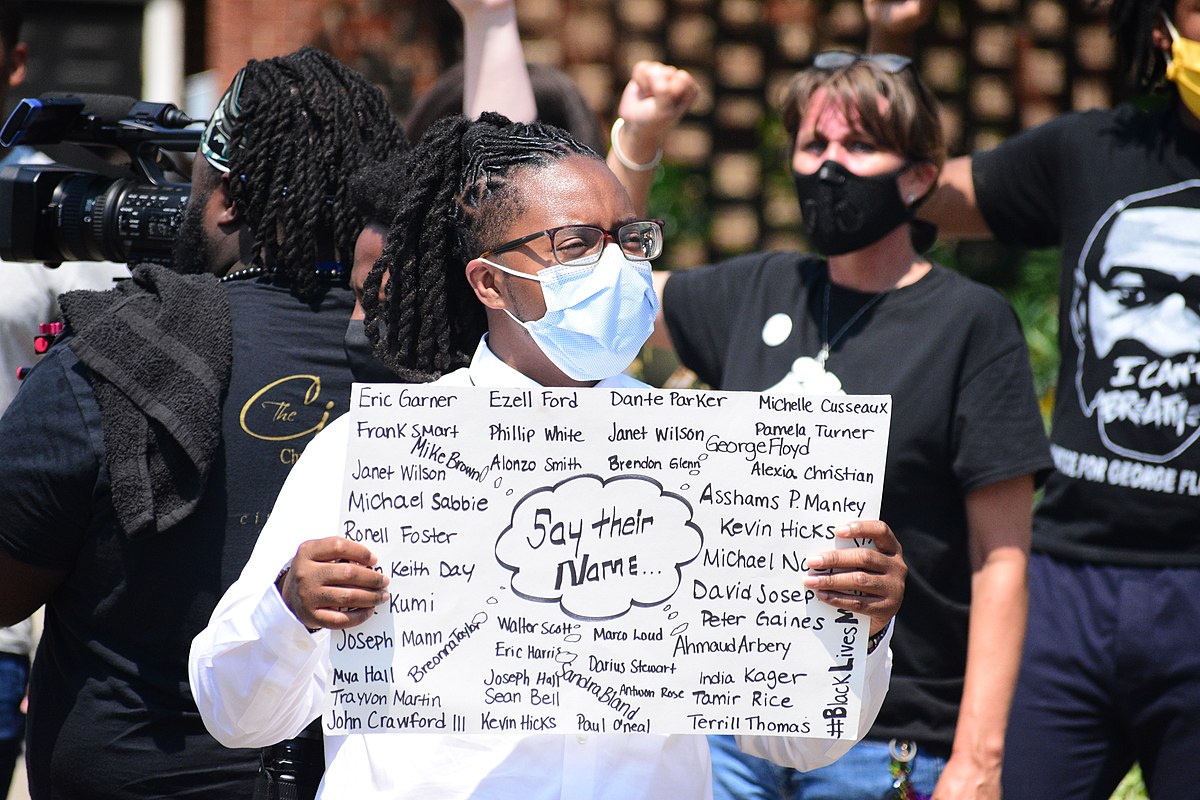 Eric Garner Ezell Ford Dante Parker Michelle Cusseaux
Frank Smart Phillip White Janet Wilson Pamela Turner
Mike Brown George Floyd
Janet Wilson Alonzo Smith Brendon Glenn Alexia Christian
Michael Sabbie Asshams P. Manley
Say their
Name...
Ronell Foster Kevin Hicks
Keith Day Michael
Kumi David
Peter Gaines
Joseph Mann Walter Scott Marco Loud Ahmaud Arbery
Breonna Taylor
Eric Harris
Mya Hall Joseph Hall Darius Stewart India Kager
Sandra Bland
Trayvon Martin Sean Bell Antwon Rose Tamir Rice
John Crawford III Kevin Hicks Paul O'neal Terrill Thomas
#BlackLives
The
I CAN'T
BREATHE
FOR GEORGE